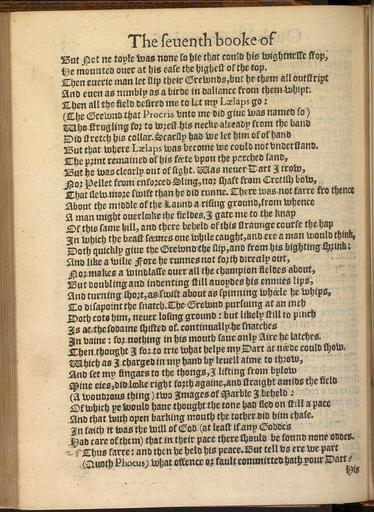 The seuenth booke of
But Net ne toyle was none so hie that could his wightnesse stop,
He mounted ouer at his ease the highest of the top.
Then euerie man let slip their Grewnds, but he them all outstript
And euen as nimbly as a birde in daliance from them whipt.
Then all the field desired me to let my Lælaps go:
(The Grewnd that Procris vnto me did giue was named so)
Who strugling for to wrest his necke already from the band
Did stretch his collar. Scarsly had we let him of of hand
But that where Lælaps was become we could not vnderstand.
The print remained of his feete vpon the parched sand,
But he was clearly out of sight. Was neuer Dart I trow,
Nor Pellet from enforced Sling, nor shaft from Cretish bow,
That flew more swift than he did runne. There was not farre fro thence
About the middle of the Laund a rising ground, from whence
A man might ouerlooke the fieldes. I gate me to the knap
Of this same hill, and there beheld of this straunge course the hap
In which the beast seemes one while caught, and ere a man would think,
Doth quickly giue the Grewnd the slip, and from his bighting shrink:
And like a wilie Foxe he runnes not forth directly out,
Nor makes a windlasse ouer all the champion fieldes about,
But doubling and indenting still auoydes his ennies lips,
And turning short, as swift about as spinning wheele he whips,
To disapoint the snatch. The Grewnd pursuing at an inch
Doth cote him, neuer losing ground: but likely still to pinch
Is at the sodaine shifted of. continually he snatches
In vaine: for nothing in his mouth saue only Aire he latches.
Then thought I for to trie what helpe my Dart at neede could show.
Which as I charged in my hand by leuell aime to throw,
And set my fingars to the thongs, I lifting from bylow
Mine eies, did looke right forth againe, and straight amids the field
(A woondrous thing) two Images of Marble I beheld:
Of which ye would haue thought the tone had fled on still a pace
And that with open barking mouth the tother did him chase.
In faith it was the will of God (at least if any Goddes
Had care of them) that in their pace there should be found none oddes.
Thus farre: and then he held his peace. But tell vs ere we part
(Quoth Phocus) what offence or fault committed hath your Dart?
His